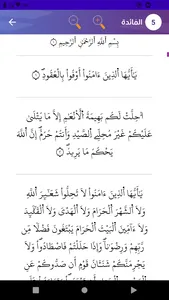 5 الفائدة
بِسْمِ ٱللَّهِ ٱلرَّحْمَٰنِ ٱلرَّحِيمِ ۝
يَٰٓأَيُّهَا ٱلَّذِينَ ءَامَنُوٓا۟ أَوْفُوا۟ بِٱلْعُقُودِ ۝
أُحِلَّتْ لَكُم بَهِيمَةُ ٱلْأَنْعَٰمِ إِلَّا مَا يُتْلَىٰ
عَلَيْكُمْ غَيْرَ مُحِلِّى ٱلصَّيْدِ وَأَنتُمْ حُرُمٌ إِنَّ ٱللَّهَ
يَحْكُمُ مَا يُرِيدُ ۝
يَٰٓأَيُّهَا ٱلَّذِينَ ءَامَنُوا۟ لَا تُحِلُّوا۟ شَعَٰٓئِرَ ٱللَّهِ
وَلَا ٱلشَّهْرَ ٱلْحَرَامَ وَلَا ٱلْهَدْىَ وَلَا ٱلْقَلَٰٓئِدَ
وَلَآ ءَآمِّينَ ٱلْبَيْتَ ٱلْحَرَامَ يَبْتَغُونَ فَضْلًا مِّن
رَّبِّهِمْ وَرِضْوَٰنًا وَإِذَا حَلَلْتُمْ فَٱصْطَادُوا۟ وَلَا
يَجْرِمَنَّكُمْ شَنَـَٔانُ قَوْمٍ أَن صَدُّوكُمْ عَنِ